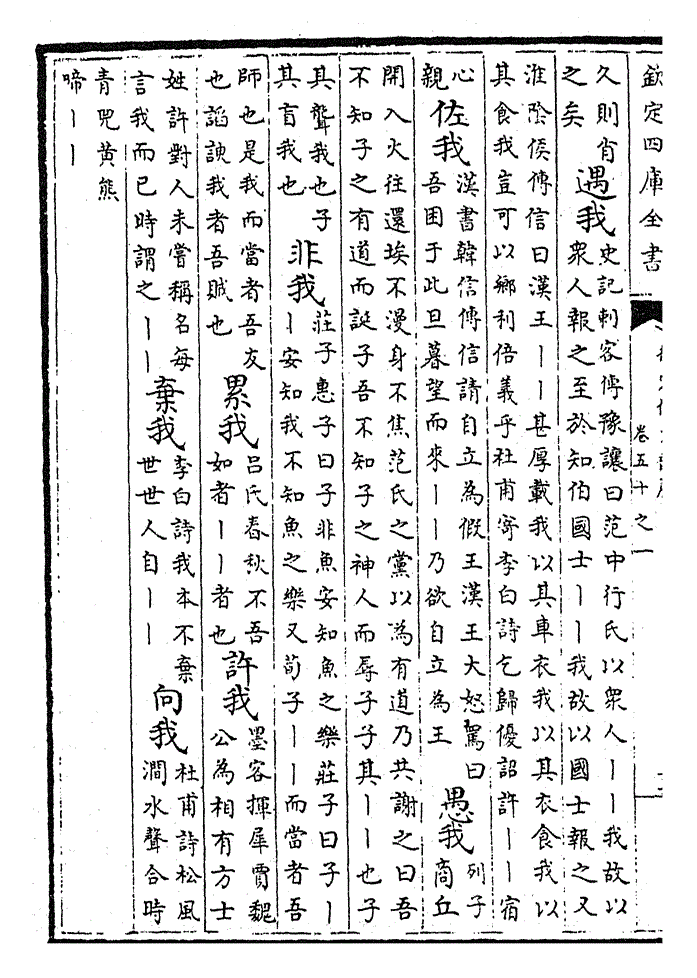 欽定四庫全書
卷五十之一
久則肯
之矣
遇我
史記刺客傳豫讓曰范中行氏以衆人丨丨我故以
衆人報之至於知伯國士丨丨我故以國士報之又
淮隂侯傳信曰漢王丨丨甚厚載我以其車衣我以其衣食我以
其食我豈可以鄉利倍義乎杜甫寄李白詩乞歸優詔許丨丨宿
心
親
佐我
漢書韓信傳信請自立為假王漢王大怒罵曰
吾困于此旦暮望而來丨丨乃欲自立為王
愚我
列子
商丘
開入火往還埃不漫身不焦范氏之黨以為有道乃共謝之曰吾
不知子之有道而誕子吾不知子之神人而辱子子其丨丨也子
其聾我也子
其盲我也
非我
莊子惠子曰子非魚安知魚之樂莊子曰子丨
丨安知我不知魚之樂又荀子丨丨而當者吾
師也是我而當者吾友
也謟諛我者吾賊也
累我
吕氏春秋不吾
如者丨丨者也
許我
墨客揮犀賈魏
公為相有方士
姓許對人未嘗稱名每
言我而已時謂之丨丨
棄我
李白詩我本不棄
世世人自丨丨
向我
杜甫詩松風
澗水聲合時
青兕黄熊
啼丨丨